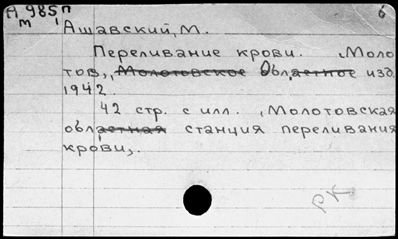 А 985 п б
м
Ашавский, М.
Переливание крови. Моло-
тов, Молотовское Областное изд.
1942.
42 стр. с илл. (Молотовская
областная станция переливания
крови).
РК